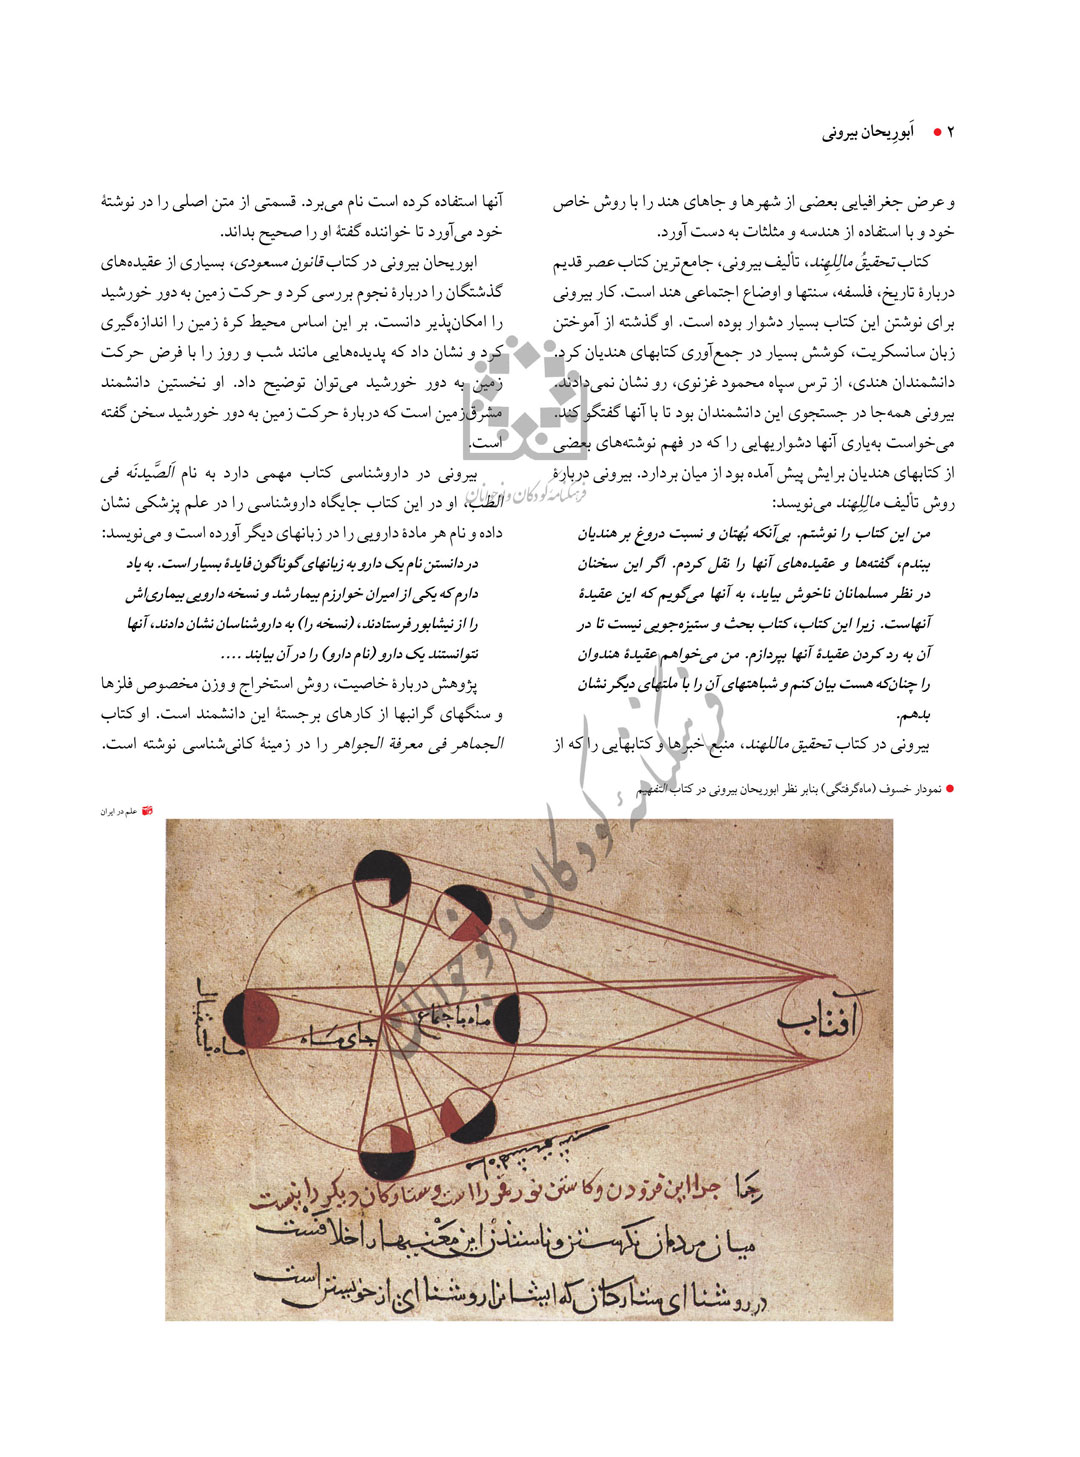 ۲ ● اَبوریحان بیرونی
و عرض جغرافیایی بعضی از شهرها و جاهای هند را با روش خاص
خود و با استفاده از هندسه و مثلثات به دست آورد.
کتاب تحقیقُ مالِلهِند، تألیف بیرونی، جامع‌ترین کتاب عصر قدیم
دربارهٔ تاریخ، فلسفه، سنتها و اوضاع اجتماعی هند است. کار بیرونی
برای نوشتن این کتاب بسیار دشوار بوده است. او گذشته از آموختن
زبان سانسکریت، کوشش بسیار در جمع‌آوری کتابهای هندیان کرد.
دانشمندان هندی، از ترس سپاه محمود غزنوی، رو نشان نمی‌دادند.
بیرونی همه‌جا در جستجوی این دانشمندان بود تا با آنها گفتگو کند.
می‌خواست به‌یاری آنها دشواریهایی را که در فهم نوشته‌های بعضی
از کتابهای هندیان برایش پیش آمده بود از میان بردارد. بیرونی دربارهٔ
روش تألیف مالِلِهند می‌نویسد:
من این کتاب را نوشتم. بی‌آنکه بُهتان و نسبت دروغ بر هندیان
ببندم، گفته‌ها و عقیده‌های آنها را نقل کردم. اگر این سخنان
در نظر مسلمانان ناخوش بیاید، به آنها می‌گویم که این عقیدهٔ
آنهاست. زیرا این کتاب، کتاب بحث و ستیزه‌جویی نیست تا در
آن به رد کردن عقیدهٔ آنها بپردازم. من می‌خواهم عقیدهٔ هندوان
را چنان‌که هست بیان کنم و شباهتهای آن را با ملتهای دیگر نشان
بدهم.
بیرونی در کتاب تحقیق ماللهند، منبع خبرها و کتابهایی را که از
آنها استفاده کرده است نام می‌برد. قسمتی از متن اصلی را در نوشتهٔ
خود می‌آورد تا خواننده گفتهٔ او را صحیح بداند.
ابوریحان بیرونی در کتاب قانون مسعودی، بسیاری از عقیده‌های
گذشتگان را دربارهٔ نجوم بررسی کرد و حرکت زمین به دور خورشید
را امکان‌پذیر دانست. بر این اساس محیط کرهٔ زمین را اندازه‌گیری
کرد و نشان داد که پدیده‌هایی مانند شب و روز را با فرض حرکت
زمین به دور خورشید می‌توان توضیح داد. او نخستین دانشمند
مشرق‌زمین است که دربارهٔ حرکت زمین به دور خورشید سخن گفته
است.
بیرونی در داروشناسی کتاب مهمی دارد به نام اَلصَّیدنَه فی
الطب، او در این کتاب جایگاه داروشناسی را در علم پزشکی نشان
داده و نام هر مادهٔ دارویی را در زبانهای دیگر آورده است و می‌نویسد:
در دانستن نام یک دارو به زبانهای گوناگون فایدهٔ بسیار است. به یاد
دارم که یکی از امیران خوارزم بیمار شد و نسخه دارویی بیماری‌اش
را از نیشابور فرستادند، (نسخه را) به داروشناسان نشان دادند، آنها
نتوانستند یک دارو (نام دارو) را در آن بیابند ....
پژوهش دربارهٔ خاصیت، روش استخراج و وزن مخصوص فلزها
و سنگهای گرانبها از کارهای برجستهٔ این دانشمند است. او کتاب
الجماهر فی معرفة الجواهر را در زمینهٔ کانی‌شناسی نوشته است.
فرهنگنامهٔ کودکان و نوجوانان
● نمودار خسوف (ماه‌گرفتگی) بنابر نظر ابوریحان بیرونی در کتاب التفهیم
علم در ایران
فرهنگنامهٔ کودکان و نوجوانان
آفتاب
ماه باجتماع
جای ماه
ماه باستقبال
چرا این فزودن و کاستن نور قمر را است و ستارکان دیکر را نیست
میان مردمان نکرستن و ناستدن این معنیها را خلافست
در روشنا ای ستارکان که ایشانرا روشنا ای از خویشتن است